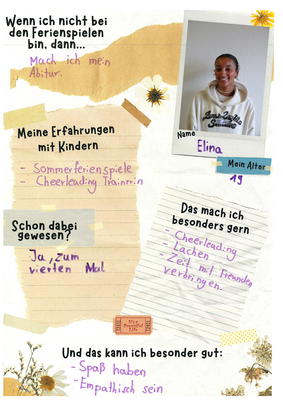 Wenn ich nicht bei
den Ferienspielen
bin, dann...
Mach ich mein
Abitur.
Name
Elina
Mein Alter
19
Meine Erfahrungen
mit Kindern
- Sommerferienspiele
- Cheerleading Trainerin
Das mach ich
besonders gern
- Cheerleading
- Lachen
- Zeit mit Freunden
verbringen.
Schon dabei
gewesen?
Ja, zum
vierten Mal
Und das kann ich besonder gut:
- Spaß haben
- Empathisch sein